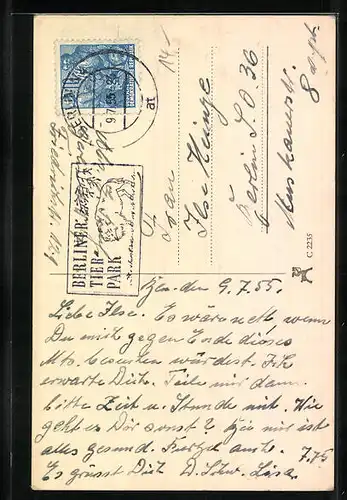 BERLIN
9.7.55
at
BERLINER
TIER-
PARK
14/-
Frau
Ilse Kunze
Berlin S.O. 36
Muskauerstr.
8
C 2235
den 9.7.55.
Liebe Ilse. Es wäre nett, wenn
Du mich gegen Ende dieses
Mts. besuchen würdest. Ich
erwarte Dich. Teile mir dann
bitte Zeit u. Stunde mit. Wie
geht es Dir sonst? Bei mir ist
alles gesund. auch.
Es grüsst Dich D. Schw. Lisa.